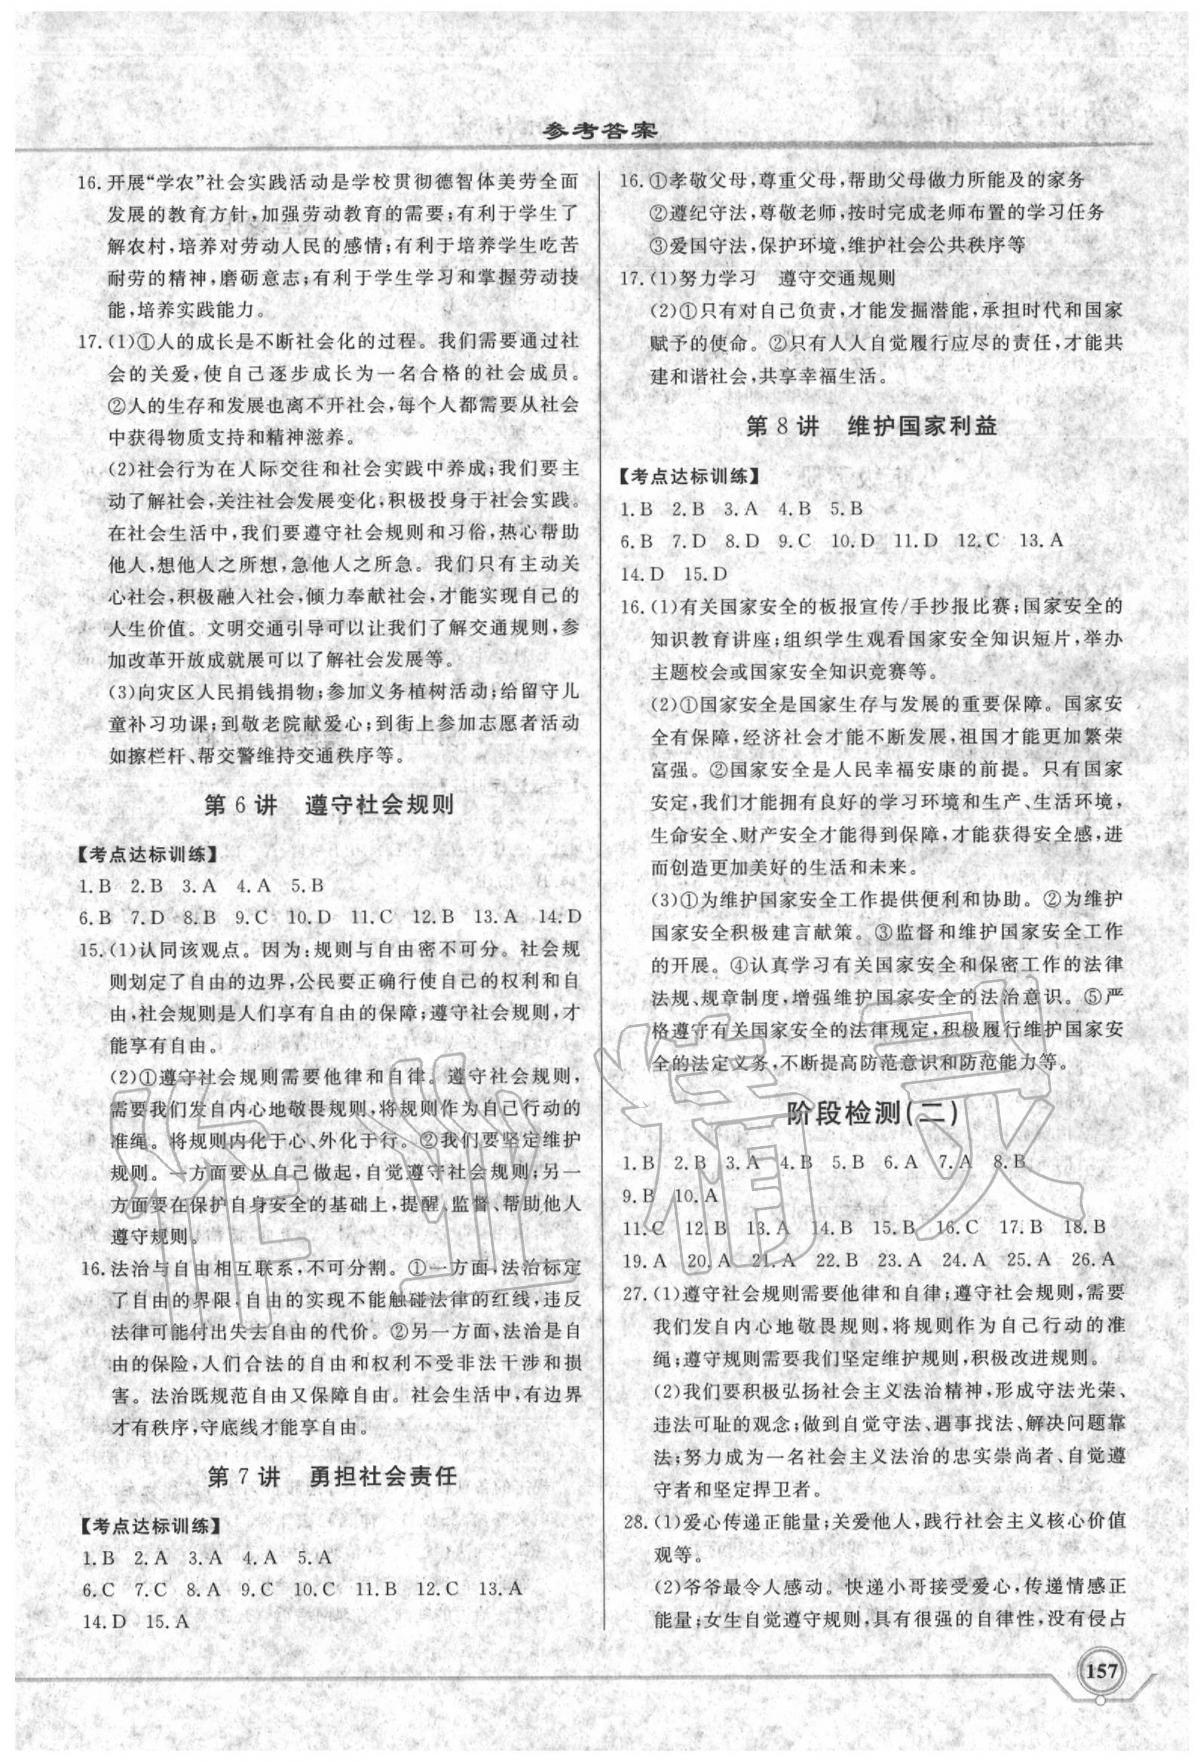 参考答案
16. 开展“学农”社会实践活动是学校贯彻德智体美劳全面
发展的教育方针,加强劳动教育的需要;有利于学生了
解农村,培养对劳动人民的感情;有利于培养学生吃苦
耐劳的精神,磨砺意志;有利于学生学习和掌握劳动技
能,培养实践能力。
17. (1)①人的成长是不断社会化的过程。我们需要通过社
会的关爱,使自己逐步成长为一名合格的社会成员。
②人的生存和发展也离不开社会,每个人都需要从社会
中获得物质支持和精神滋养。
(2)社会行为在人际交往和社会实践中养成;我们要主
动了解社会,关注社会发展变化,积极投身于社会实践。
在社会生活中,我们要遵守社会规则和习俗,热心帮助
他人,想他人之所想,急他人之所急。我们只有主动关
心社会,积极融入社会,倾力奉献社会,才能实现自己的
人生价值。文明交通引导可以让我们了解交通规则,参
加改革开放成就展可以了解社会发展等。
(3)向灾区人民捐钱捐物;参加义务植树活动;给留守儿
童补习功课;到敬老院献爱心;到街上参加志愿者活动
如擦栏杆、帮交警维持交通秩序等。
第 6 讲 遵守社会规则
【考点达标训练】
1. B 2. B 3. A 4. A 5. B
6. B 7. D 8. B 9. C 10. D 11. C 12. B 13. A 14. D
15. (1)认同该观点。因为:规则与自由密不可分。社会规
则划定了自由的边界,公民要正确行使自己的权利和自
由,社会规则是人们享有自由的保障;遵守社会规则,才
能享有自由。
(2)①遵守社会规则需要他律和自律。遵守社会规则,
需要我们发自内心地敬畏规则,将规则作为自己行动的
准绳。将规则内化于心、外化于行。②我们要坚定维护
规则。一方面要从自己做起,自觉遵守社会规则;另一
方面要在保护自身安全的基础上,提醒、监督、帮助他人
遵守规则。
16. 法治与自由相互联系,不可分割。①一方面,法治标定
了自由的界限,自由的实现不能触碰法律的红线,违反
法律可能付出失去自由的代价。②另一方面,法治是自
由的保险,人们合法的自由和权利不受非法干涉和损
害。法治既规范自由又保障自由。社会生活中,有边界
才有秩序,守底线才能享自由。
第 7 讲 勇担社会责任
【考点达标训练】
1. B 2. A 3. A 4. A 5. A
6. C 7. C 8. A 9. C 10. C 11. B 12. C 13. A
14. D 15. A
16. ①孝敬父母,尊重父母,帮助父母做力所能及的家务
②遵纪守法,尊敬老师,按时完成老师布置的学习任务
③爱国守法,保护环境,维护社会公共秩序等
17. (1)努力学习 遵守交通规则
(2)①只有对自己负责,才能发掘潜能,承担时代和国家
赋予的使命。②只有人人自觉履行应尽的责任,才能共
建和谐社会,共享幸福生活。
第 8 讲 维护国家利益
【考点达标训练】
1. B 2. B 3. A 4. B 5. B
6. B 7. D 8. D 9. C 10. D 11. D 12. C 13. A
14. D 15. D
16. (1)有关国家安全的板报宣传/手抄报比赛;国家安全的
知识教育讲座;组织学生观看国家安全知识短片,举办
主题校会或国家安全知识竞赛等。
(2)①国家安全是国家生存与发展的重要保障。国家安
全有保障,经济社会才能不断发展,祖国才能更加繁荣
富强。②国家安全是人民幸福安康的前提。只有国家
安定,我们才能拥有良好的学习环境和生产、生活环境,
生命安全、财产安全才能得到保障,才能获得安全感,进
而创造更加美好的生活和未来。
(3)①为维护国家安全工作提供便利和协助。②为维护
国家安全积极建言献策。③监督和维护国家安全工作
的开展。④认真学习有关国家安全和保密工作的法律
法规、规章制度,增强维护国家安全的法治意识。⑤严
格遵守有关国家安全的法律规定,积极履行维护国家安
全的法定义务,不断提高防范意识和防范能力等。
阶段检测(二)
1. B 2. B 3. A 4. B 5. B 6. A 7. A 8. B
9. B 10. A
11. C 12. B 13. A 14. B 15. B 16. C 17. B 18. B
19. A 20. A 21. A 22. B 23. A 24. A 25. A 26. A
27. (1)遵守社会规则需要他律和自律;遵守社会规则,需要
我们发自内心地敬畏规则,将规则作为自己行动的准
绳;遵守规则需要我们坚定维护规则,积极改进规则。
(2)我们要积极弘扬社会主义法治精神,形成守法光荣、
违法可耻的观念;做到自觉守法、遇事找法、解决问题靠
法;努力成为一名社会主义法治的忠实崇尚者、自觉遵
守者和坚定捍卫者。
28. (1)爱心传递正能量;关爱他人,践行社会主义核心价值
观等。
(2)爷爷最令人感动。快递小哥接受爱心,传递情感正
能量;女生自觉遵守规则,具有很强的自律性,没有侵占
157
作业精灵